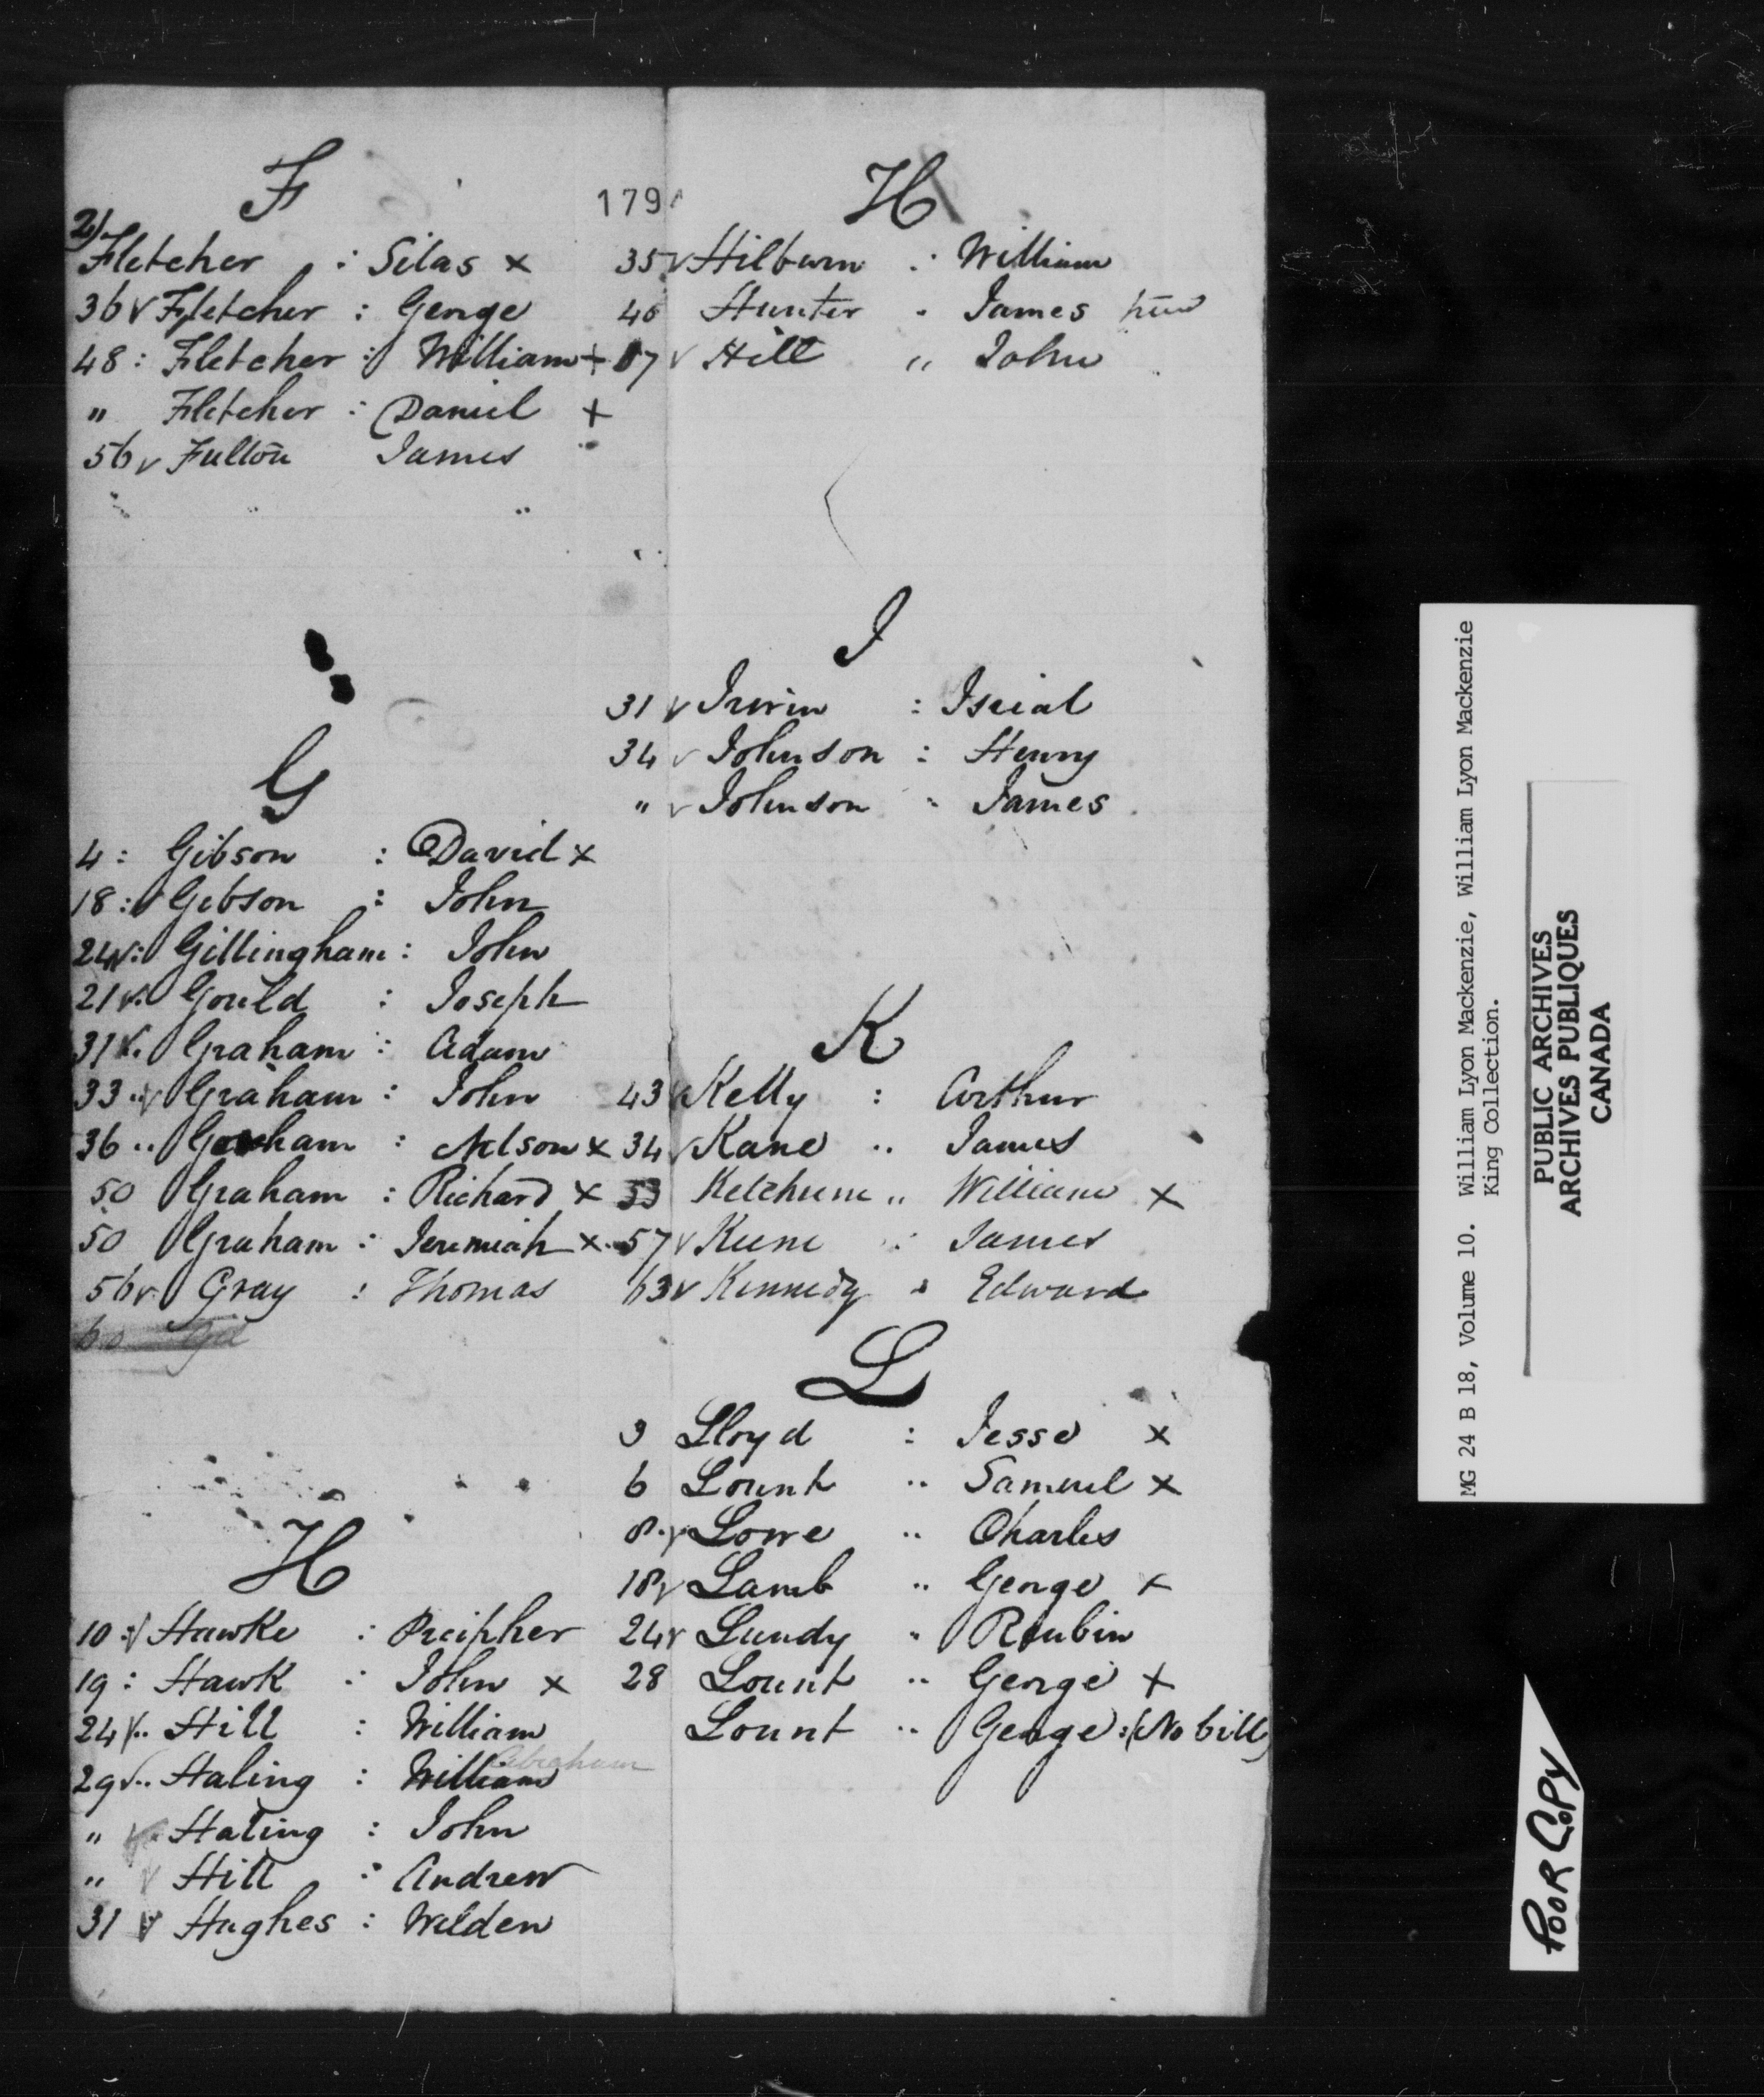 F
2) Fletcher : Silas x
36 v Fletcher : George
48 : Fletcher : William +
" Fletcher : Daniel +
56 v Fulton James
G
4 : Gibson : David x
18 : Gibson : John
24 v : Gillingham : John
21 v. Gould : Joseph
31 v. Graham : Adam
33 .. v Graham : John
36 .. Gorham : Nelson x
50 Graham : Richard x
50 Graham : Jeremiah x
56 v Gray : Thomas
60
H
10 : v Hawke :
19 : Hawk : John x
24 v.. Hill : William
Abraham
29 v.. Haling : William
" v. Haling : John
" v Hill : Andrew
31 v Hughes : Welden
179
H
35 v Hilburn . William
46 Hunter . James
57 v Hill " John
I
31 v Irwin : Isrial
34 v Johnson : Henry
" v Johnson " James
K
43 v Kelly : Arthur
34 v Kane .. James
53 Ketchum .. William x
57 v Keene : James
63 v Kennedy . Edward
L
3 Lloyd : Jesse x
6 Lount .. Samuel x
8 . v Lowe .. Charles
18 v Lamb .. George x
24 v Lundy . Reubin
28 Lount .. George +
Lount .. George : (No bill)
MG 24 B 18, Volume 10. William Lyon Mackenzie, William Lyon Mackenzie
King Collection.
PUBLIC ARCHIVES
ARCHIVES PUBLIQUES
CANADA
POOR COPY